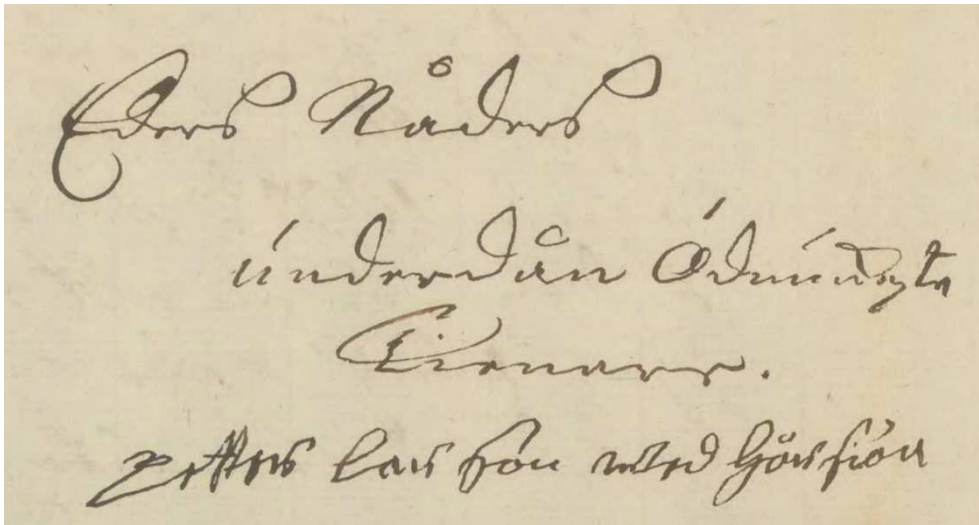 Eders Nåders
underdån Ödmiukste
Tienare.
petter lars son wed hörsiön